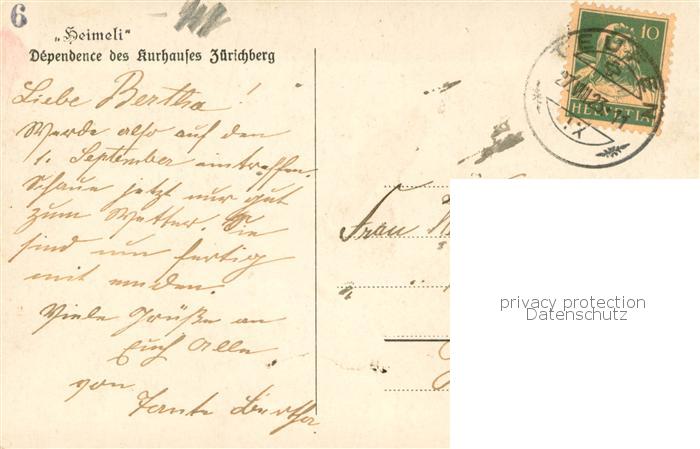 6
„Heimeli“
Dépendence des Kurhauses Zürichberg
Liebe Bertha!
Werde also auf den
1. September eintreffen.
Schaue jetzt nur gut
zum Wetter. Sie
sind nun fertig
mit
Viele Grüße an
Euch Alle
von
Tante Bertha
10
HELVETIA
TEUFEN
Frau
privacy protection
Datenschutz